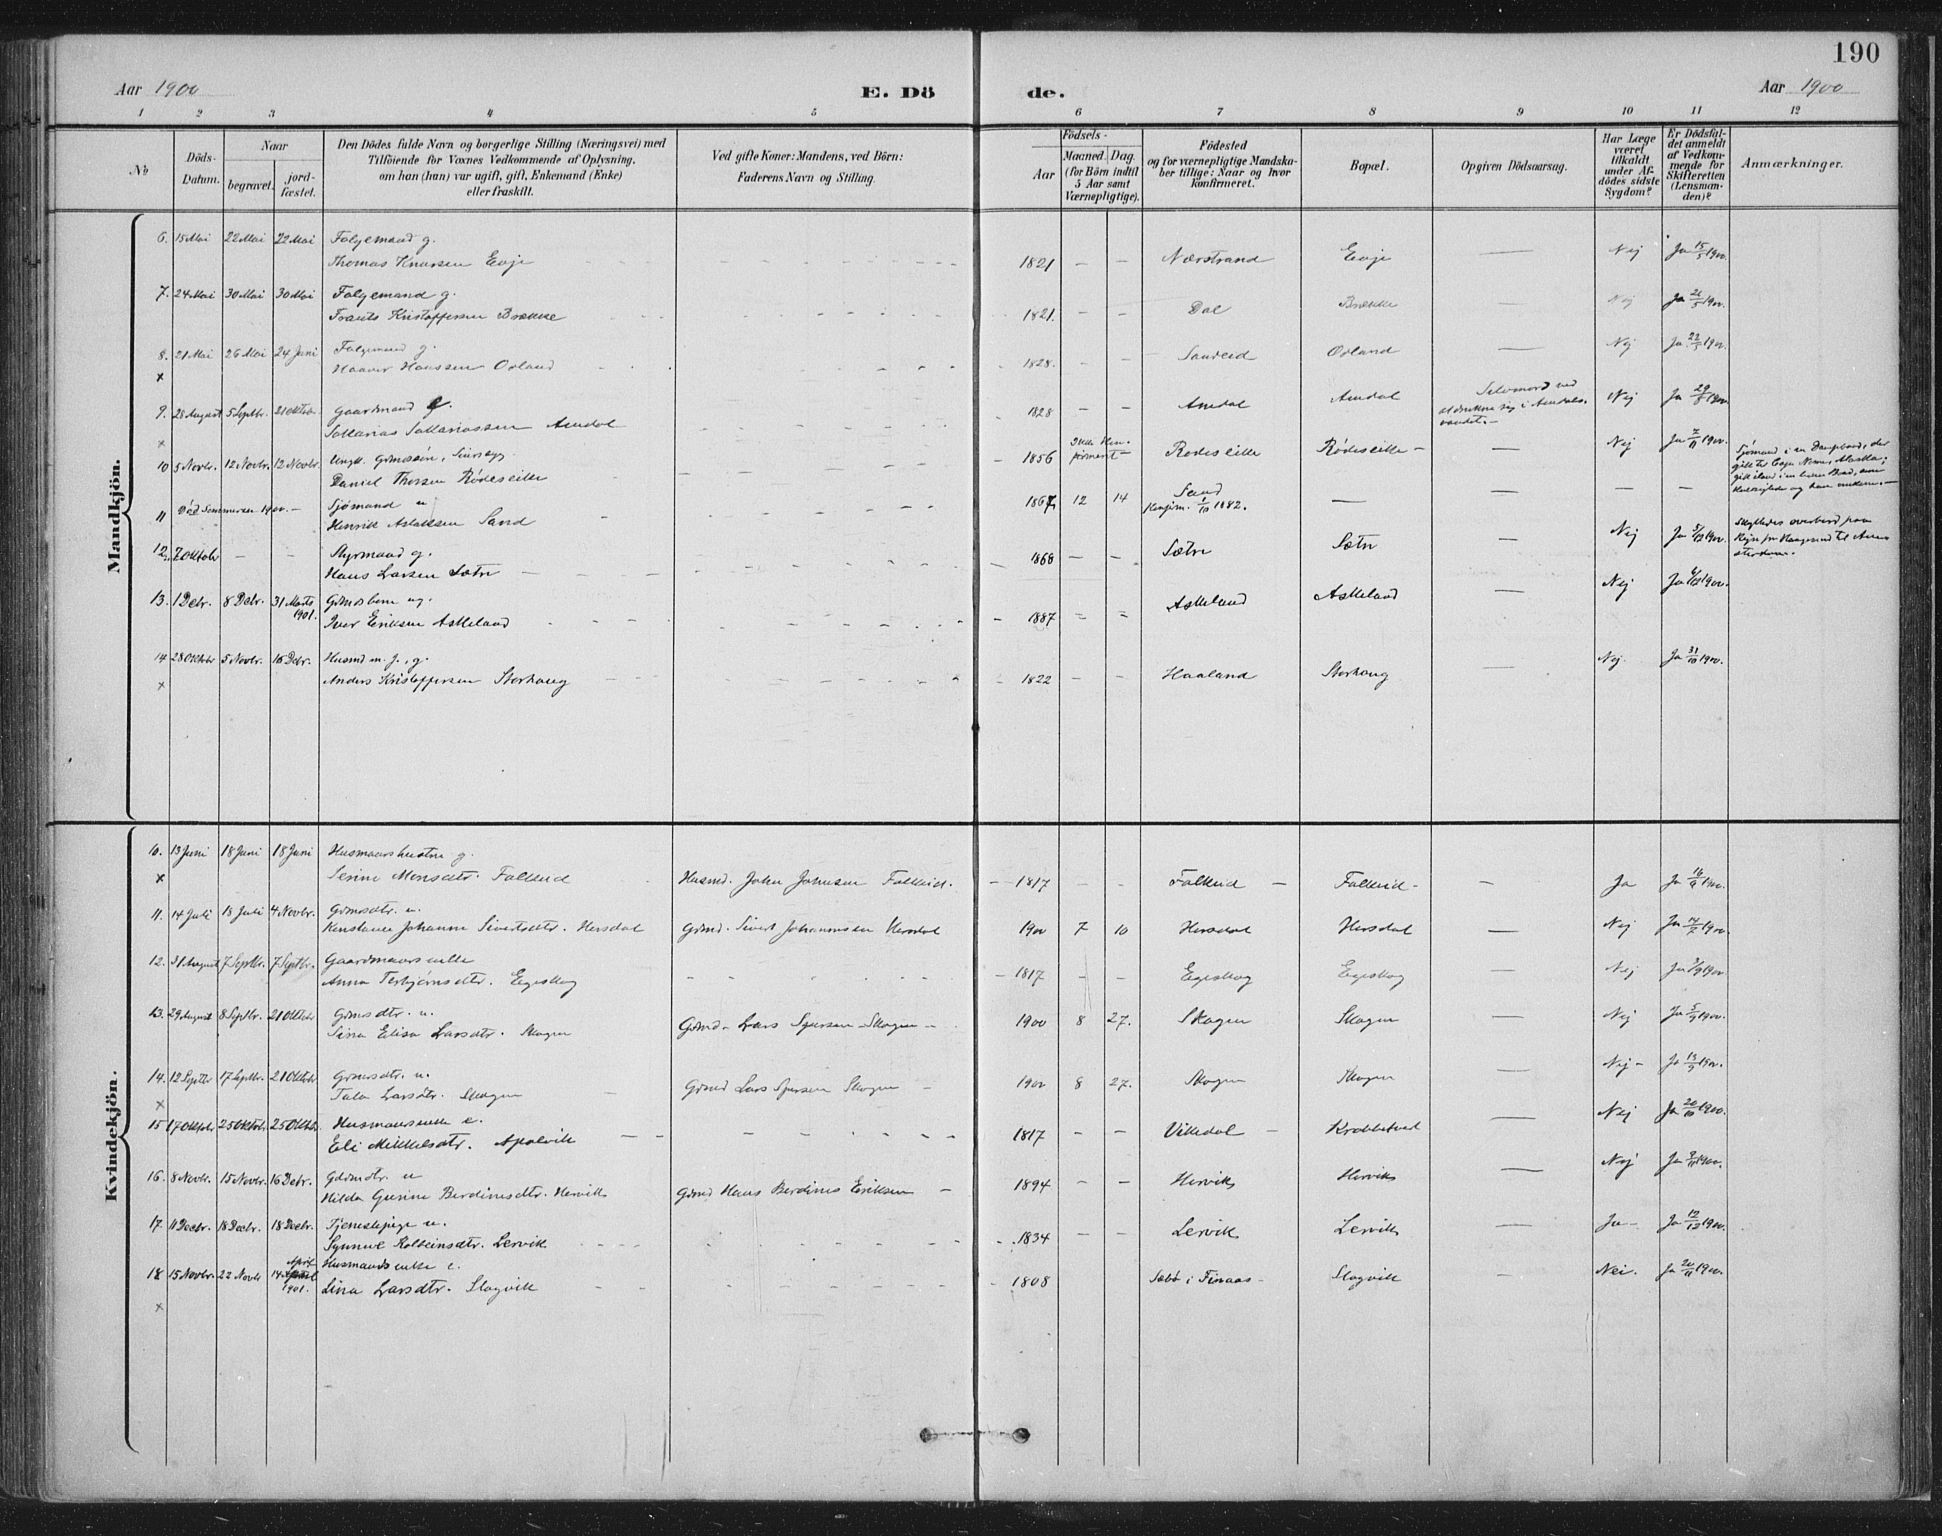 190
Aar 1900
E. Dö de.
Aar 1900
1 2 3 4 5 6 7 8 9 10 11 12
No
Döds-Datum.
Naar
begravet.
jord-fæstet.
Den Dödes fulde Navn og borgerlige Stilling (Næringsvei) med
Tilföiende for Voxnes Vedkommende af Oplysning,
om han (hun) var ugift, gift, Enkemand (Enke)
eller fraskilt.
Ved gifte Koner: Mandens, ved Börn:
Faderens Navn og Stilling.
Födsels-
Aar
Maaned. Dag.
(for Börn indtil
5 Aar samt
Værnepligtige).
Födested
og for værnepligtige Mandska-
ber tillige: Naar og hvor
konfirmeret.
Bopæl.
Opgiven Dödsaarsag.
Har Læge
været
tilkaldt
under Af-
dödes sidste
Sygdom?
Er Dödsfal-
det anmeldt
af Vedkom-
mende for
Skifteretten
(Lensman-
den)?
Anmærkninger.
Mandkjön.
6. 15 Mai 22 Mai 22 Mai Folgemand g.
Thomas Knutsen Evje 1821 – – Nærstrand Evje — Nej Ja 15/5 1900.
7. 24 Mai 30 Mai 30 Mai Folgemand g.
Kristoffersen Brække 1821. – – Dal Brække — Nej
8. 21 Mai 26 Mai 24 Juni Folgemand g.
x Haaver Hanssen Opland 1828. – – Sandeid — Nej Ja 22/5 1900.
9. 28 August 5 Septbr. 21 Oktober Gaardmand g.
x Sakkarias Sakkariassen Amdal 1828 – – Amdal Amdal Selvmord ved
at drukne sig i Amdals-
vandet.– Nej Ja 29/8 1900
10 5 Novbr. 12 Novbr. 12 Novbr. Ungk. Grdmssøn,
Daniel Thorsen Rødeseike 1856 Ikke kon-
firmeret– Rødeseike Rødeseike – — Nej Ja 7/11 1900.
11 Død Sommeren 1900. – Sjømand u
Henrik Aslaksen Sand 1867 12 14 Sand
Konfirm. 1/10 1882. — — — —
Sjømand i en Dampbaad, der
gik til Cape Nome, Alaska;
12. 7 Oktobr – – Styrmand g.
Hans Larsen Sætre 1868 – – Sætre Sætre — Nej Ja 5/12 1900.
Skylledes overbord paa
Rejse fra Haugesund til Amsterdam.
13. 1 Debr. 8 Debr. 31 Marts
1901. Grdmsbarn ug.
Iver Eriksen Askeland 1887 – – Askeland Askeland — Nej
14 28 Oktobr 5 Novbr. 16 Debr. Husmd m. J., g.
x Anders Kristoffersen Storhaug 1822 – – Haaland Storhaug — Nej. Ja 31/10 1900.
Kvindekjön.
10. 13 Juni 18 Juni 18 Juni Husmandshustru g.
x Serine Monsdtr. Falkeid Husmd. John Johnsen Falkeid. 1817 – – Falkeid – Falkeid – – Ja
11. 14 Juli 18 Juli 4 Novbr. Grdmsdtr. u.
Konstanse Johanne Sivertsdtr. Hersdal Grdmd. Sivert Johannesen Hersdal 1900 7 10 Hersdal Hersdal — Nej Ja 14/7 1900.
12. 31 August 7 Septbr. 7 Septbr. Gaardmandsenke
Anna Torbjørnsdtr. Egeskog 1817 – – Egeskog Egeskog — Nej Ja 3/9 1900.
13. 29 August 8 Septbr. 21 Oktobr Grdmsdtr. u.
Sina Elisa Larsdtr. Skogen Grdmd – Lars Sjursen Skogen – 1900 8 27. Skogen Skogen — Nej Ja 5/9 1900.
14. 12 Septbr 17 Septbr. 21 Oktobr Grdmsdtr. u.
x Larsdtr. Skogen Grdmd Lars Sjursen Skogen – 1900 8 27. Skogen Skogen — Nej – Ja 13/9 1900.
15 17 Oktobr 25 Oktobr. 25 Oktobr. Husmandsenke e.
Eli Mikkelsdtr. Apalvik 1817 – – Vikedal – Krabbetveit — Nej Ja 20/10 1900.
16. 8 Novbr. 15 Novbr. 16 Debr. Grdmdtr. u
Hilda Gurine Berdinesdtr. Hervik Grdmd Hans Berdines Eriksen – 1894 – – Hervik Hervik — Nej Ja 9/11 1900.
17. 11 Decbr. 18 Decbr. 18 Decbr. Tjenestepige u.
Synnve Kolbeinsdtr. Lervik 1834 – – Lervik Lervik — Ja – Ja 12/12 1900.
18 15 Novbr. 22 Novbr 14 April
1901. Husmandsenke e.
x Lina Larsdtr. Slogvik 1808 Sæbø i Finaas – Slogvik — Nei. Ja 20/11 1900.